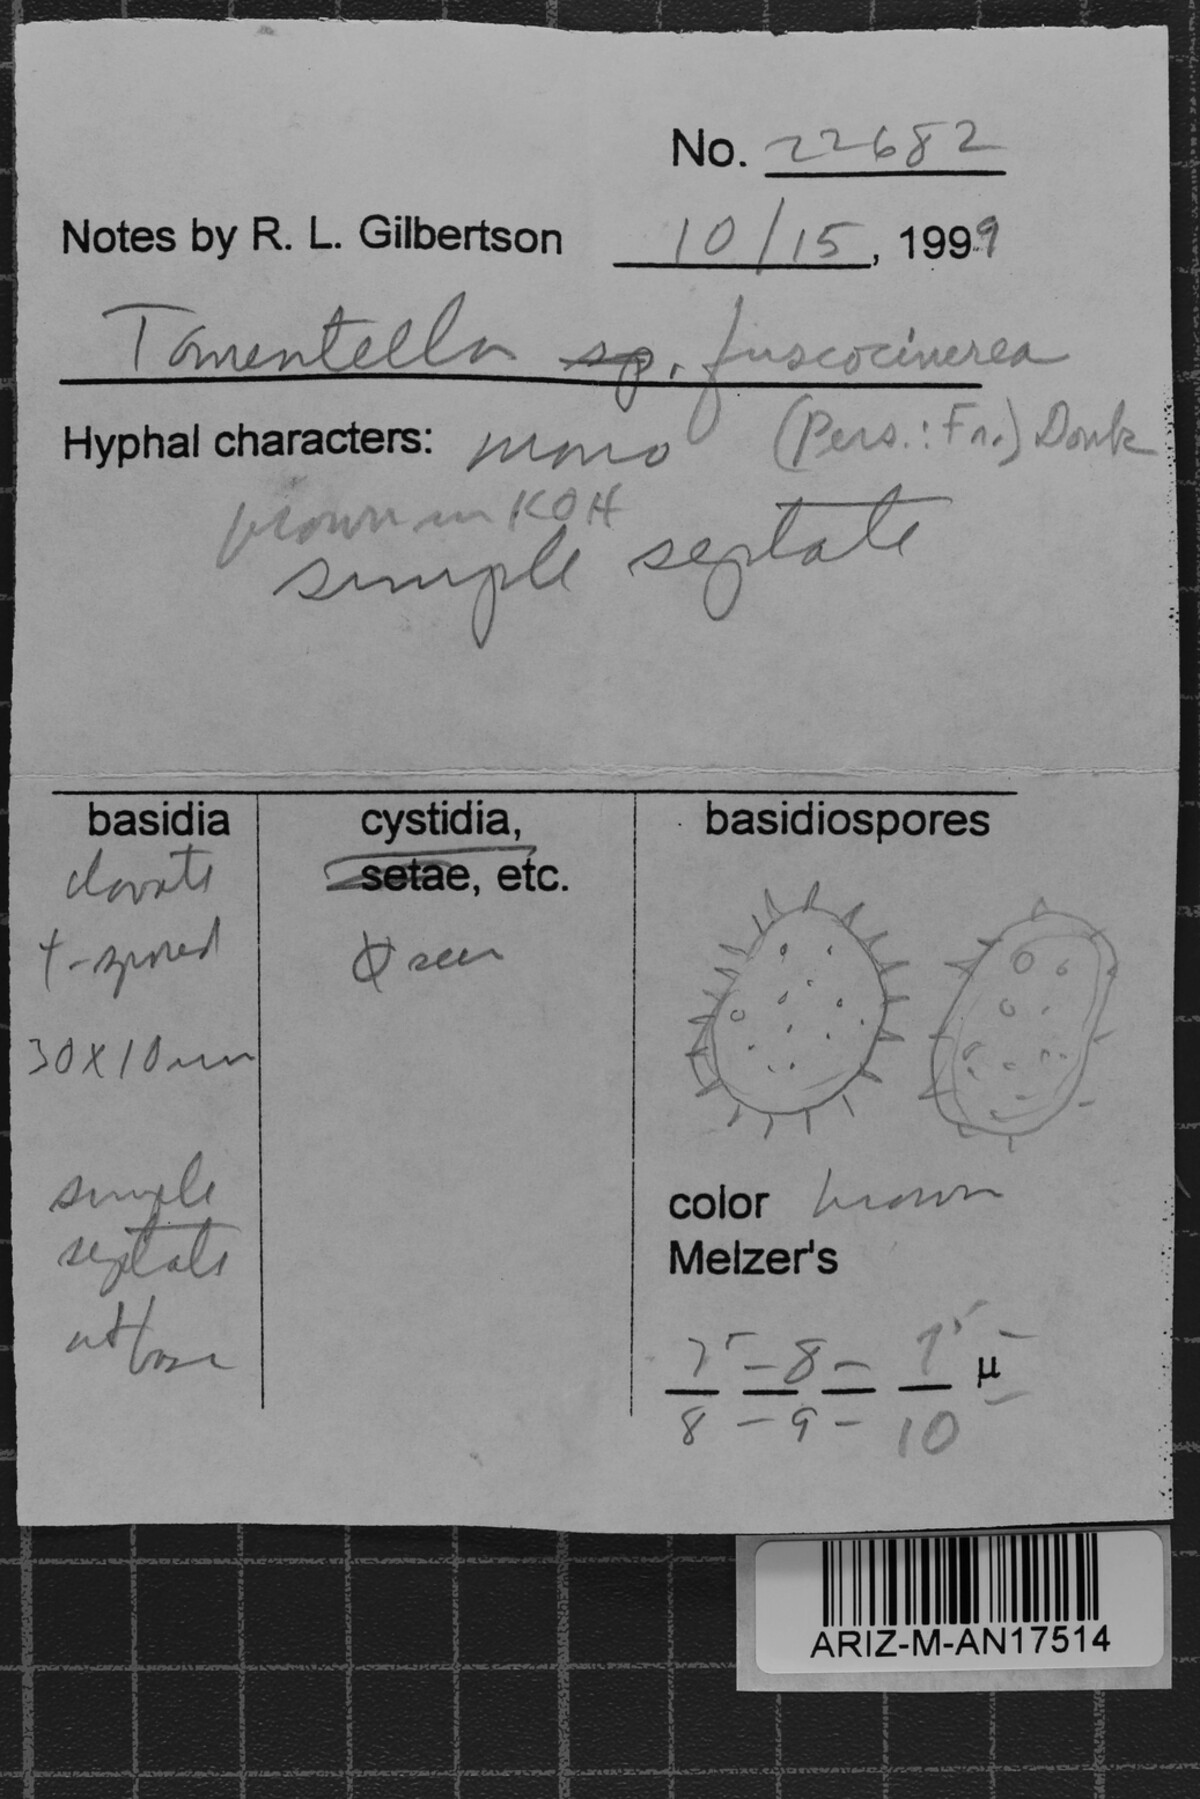 No. 22682
Notes by R. L. Gilbertson 10/15, 1999
Tomentella sp. fuscocinerea
(Pers.: Fr.) Donk
Hyphal characters: mono
brown in KOH
simple septate
basidia
clavate
4-spored
30 x 10 um
simple
septate
at base
cystidia,
setae, etc.
Ø seen
basidiospores
color brown
Melzer's
8 - 9 - 10
µ
ARIZ-M-AN17514